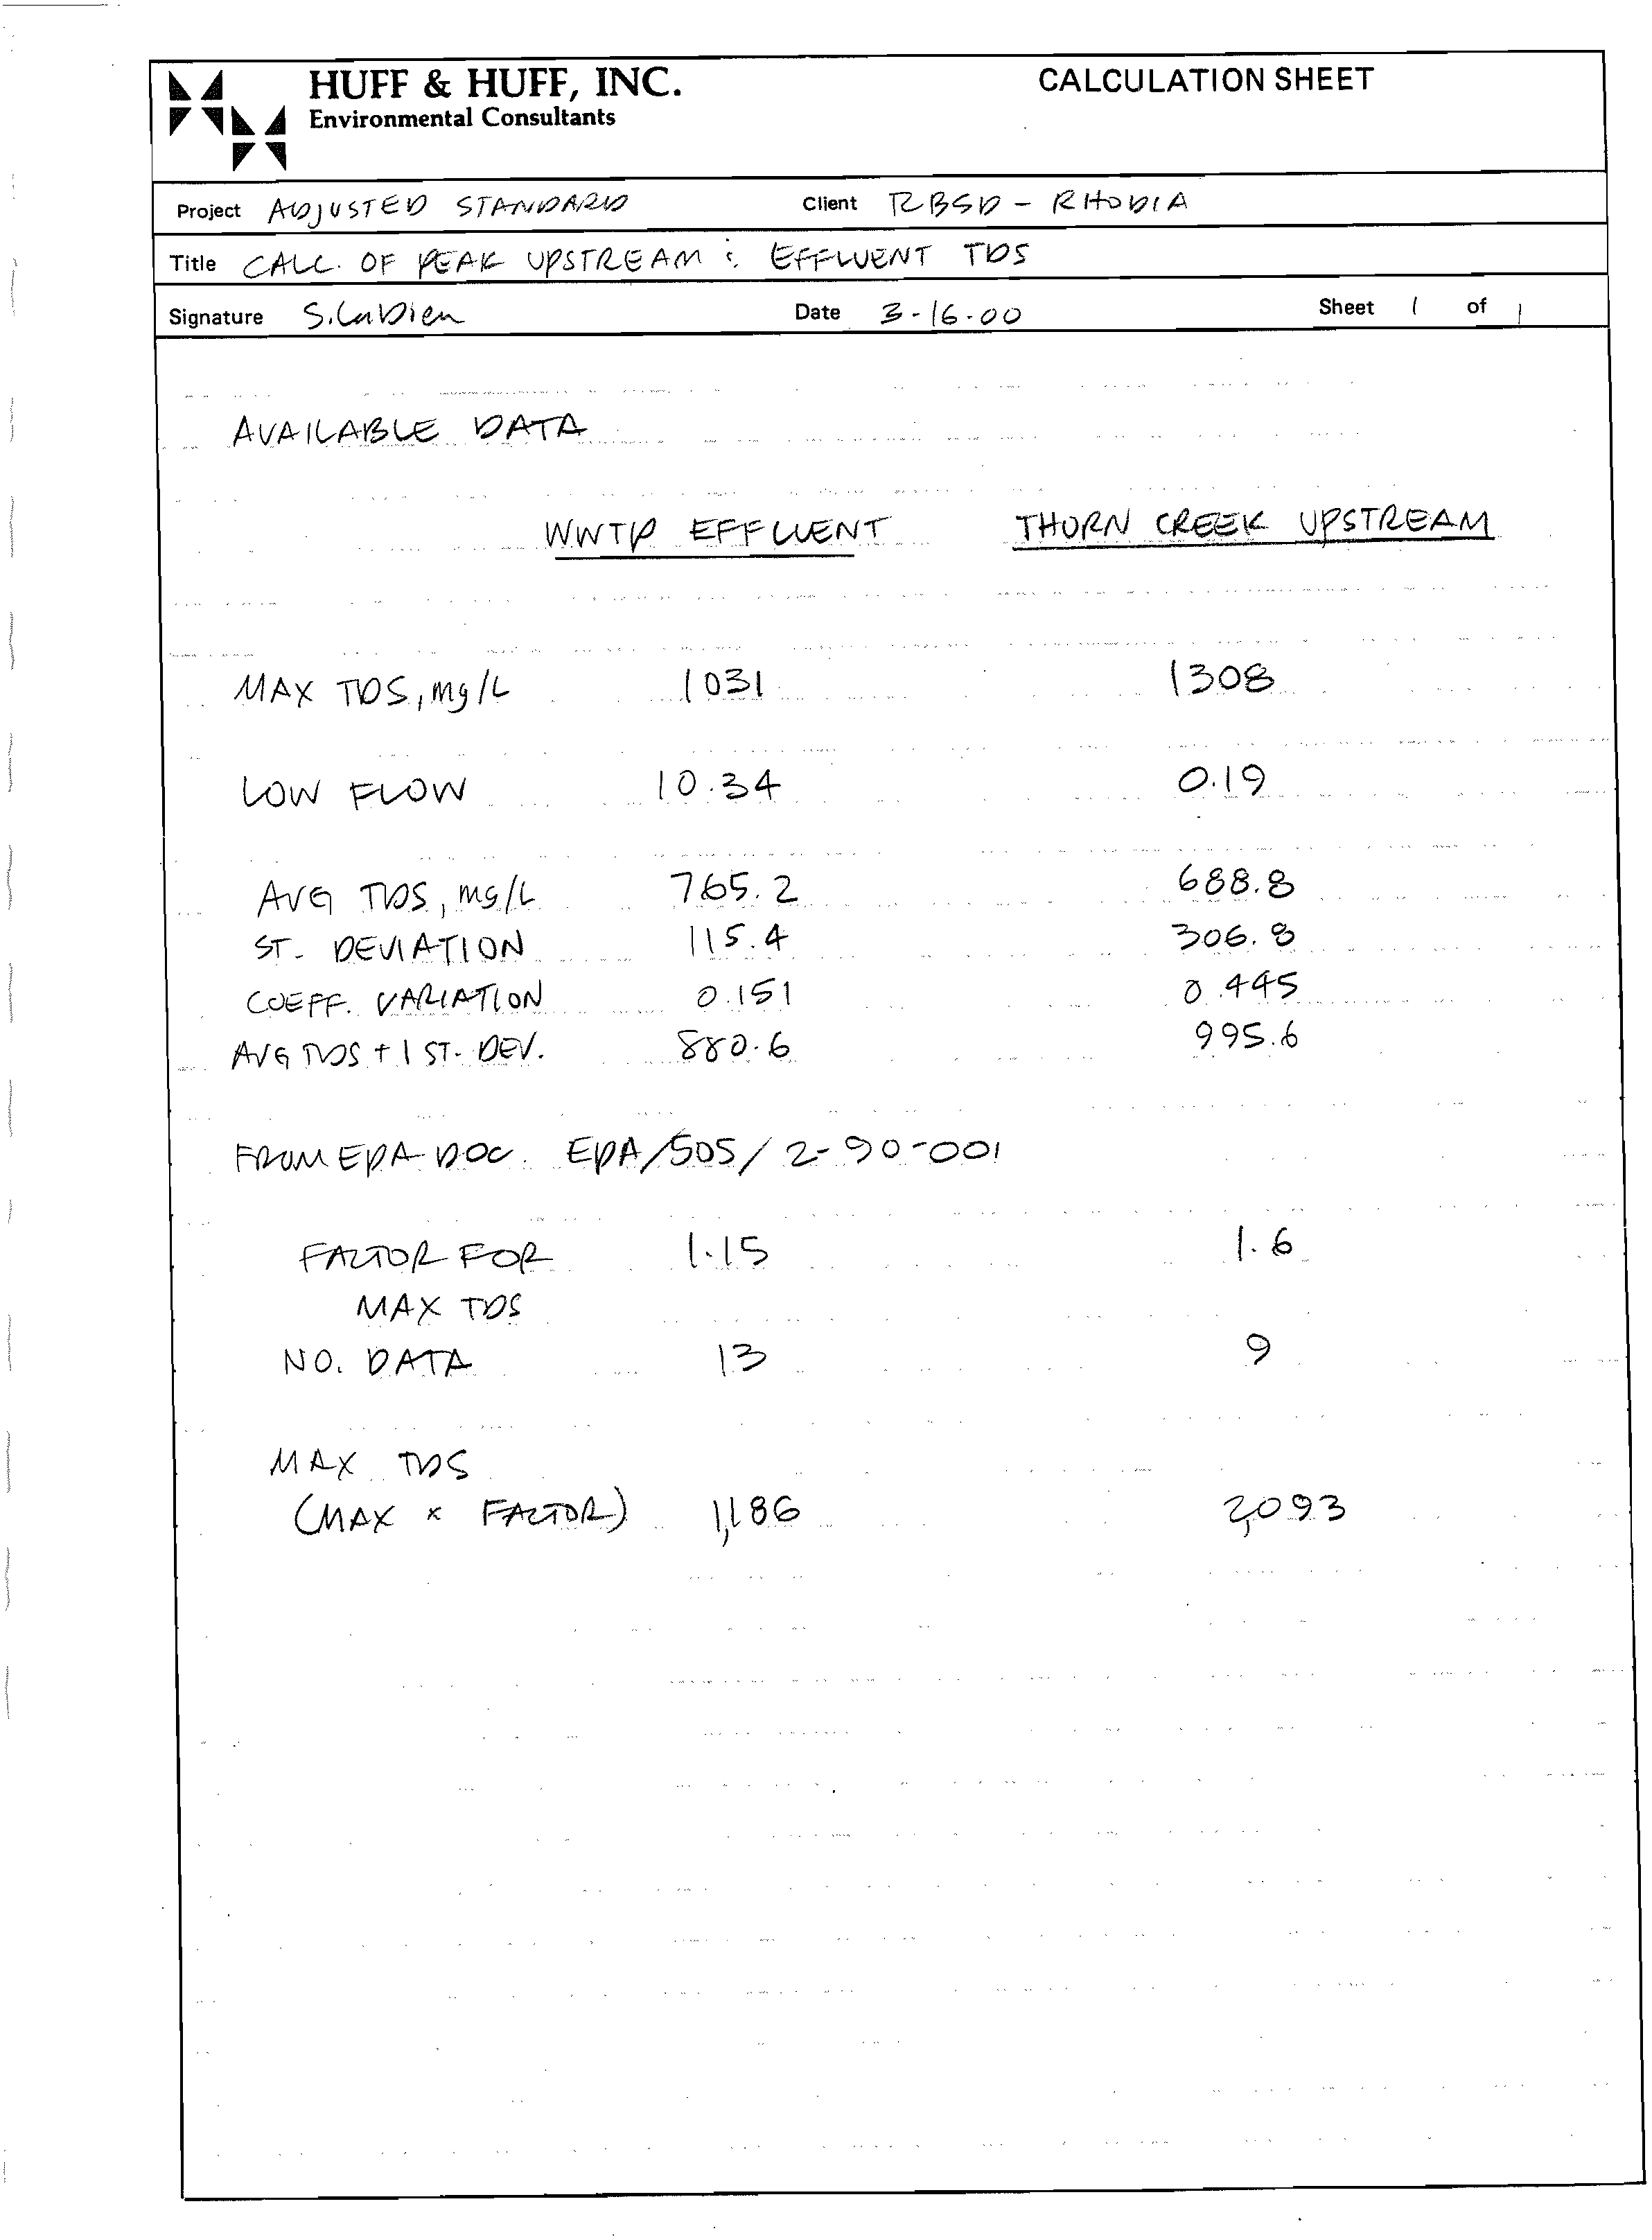 HUFF & HUFF, INC. CALCULATION SHEET
Environmental Consultants
Project ADJUSTED STANDARD Client TCBSD - RHODIA
Title CALC. OF PEAK UPSTREAM & EFFLUENT TDS
Signature S. LaDien Date 3-16-00 Sheet 1 of 1
AVAILABLE DATA
WWTP EFFLUENT THORN CREEK UPSTREAM
MAX TDS, mg/L 1031 1308
LOW FLOW 10.34 0.19
AVG TDS, mg/L 765.2 688.8
ST. DEVIATION 115.4 306.8
COEFF. VARIATION 0.151 0.445
AVG TDS + 1 ST. DEV. 880.6 995.6
FROM EPA DOC. EPA/505/2-90-001
FACTOR FOR 1.15 1.6
MAX TDS
NO. DATA 13 9
MAX TDS
(MAX x FACTOR) 1,186 2,093